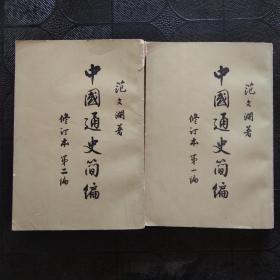 范文澜著
中國通史简编
修订本 第二编
范文澜著
中國通史简编
修订本 第一编